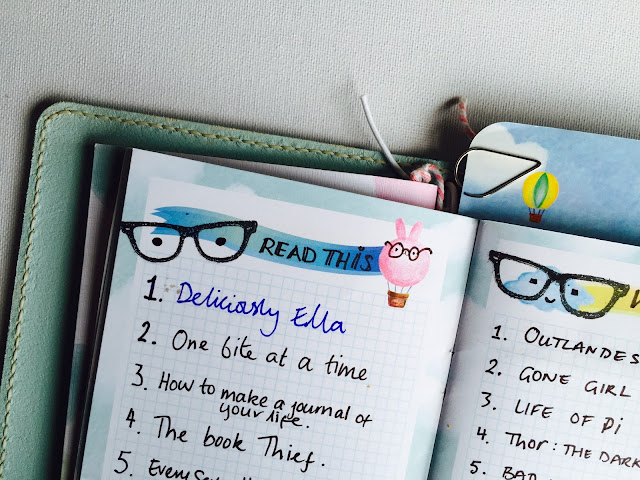 READ THIS
1. Deliciously Ella
2. One bite at a time
3. How to make a journal of
your life.
4. The book Thief.
5.
1. OUTLANDES
2. GONE GIRL
3. LIFE OF Pi
4. Thor: THE DARK
5. BAD